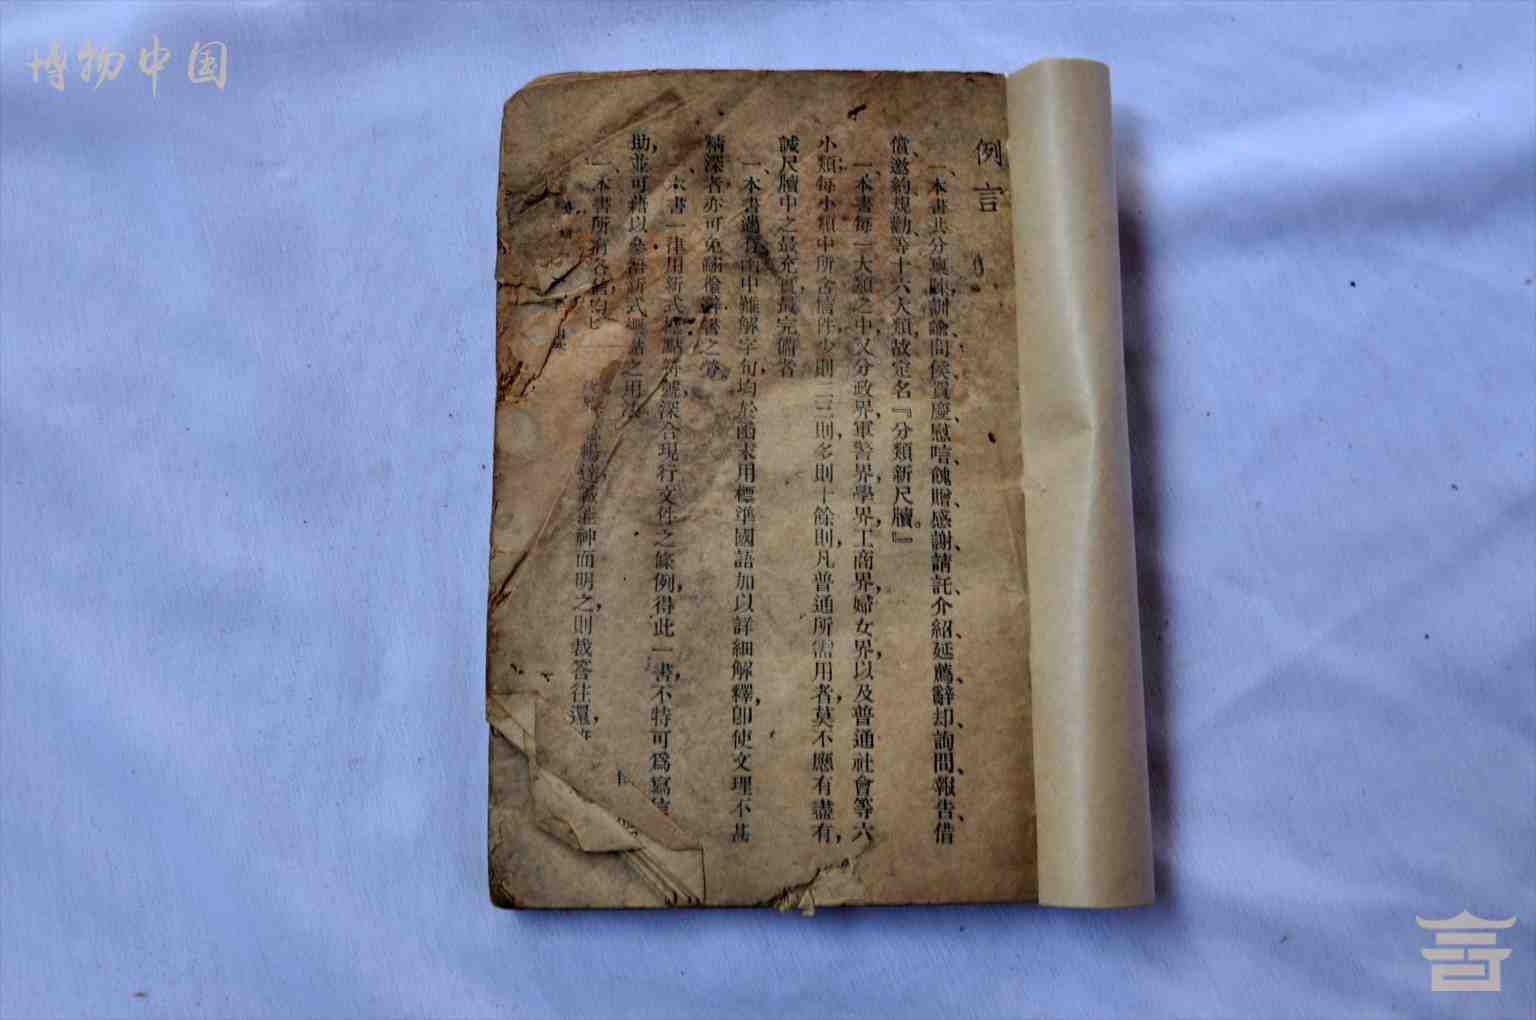 博物中国
例言
一、本書共分稟陳、訓諭、問候、賀慶、慰唁、餽贈、感謝、請託、介紹、延薦、辭却、詢問、報告、借
償、邀約、規勸、等十六大類、故定名『分類新尺牘。』
一、本書每一大類之中、又分政界、軍警界、學界、工商界、婦女界、以及普通社會等六
小類、每小類中所含信件、少則二三則、多則十餘則、凡普通所需用者、莫不應有盡有、
誠尺牘中之最充實最完備者
一、本書遇有函中難解字句、均於函末用標準國語加以詳細解釋、即使文理不甚
精深者、亦可免翻檢辭書之勞、
一、本書一律用新式標點符號、深合現行文件之條例、得此一書、不特可為寫信
助、並可藉以參悟新式標點之用法
一、本書所有各
暢達 神而明之、則裁答往還、